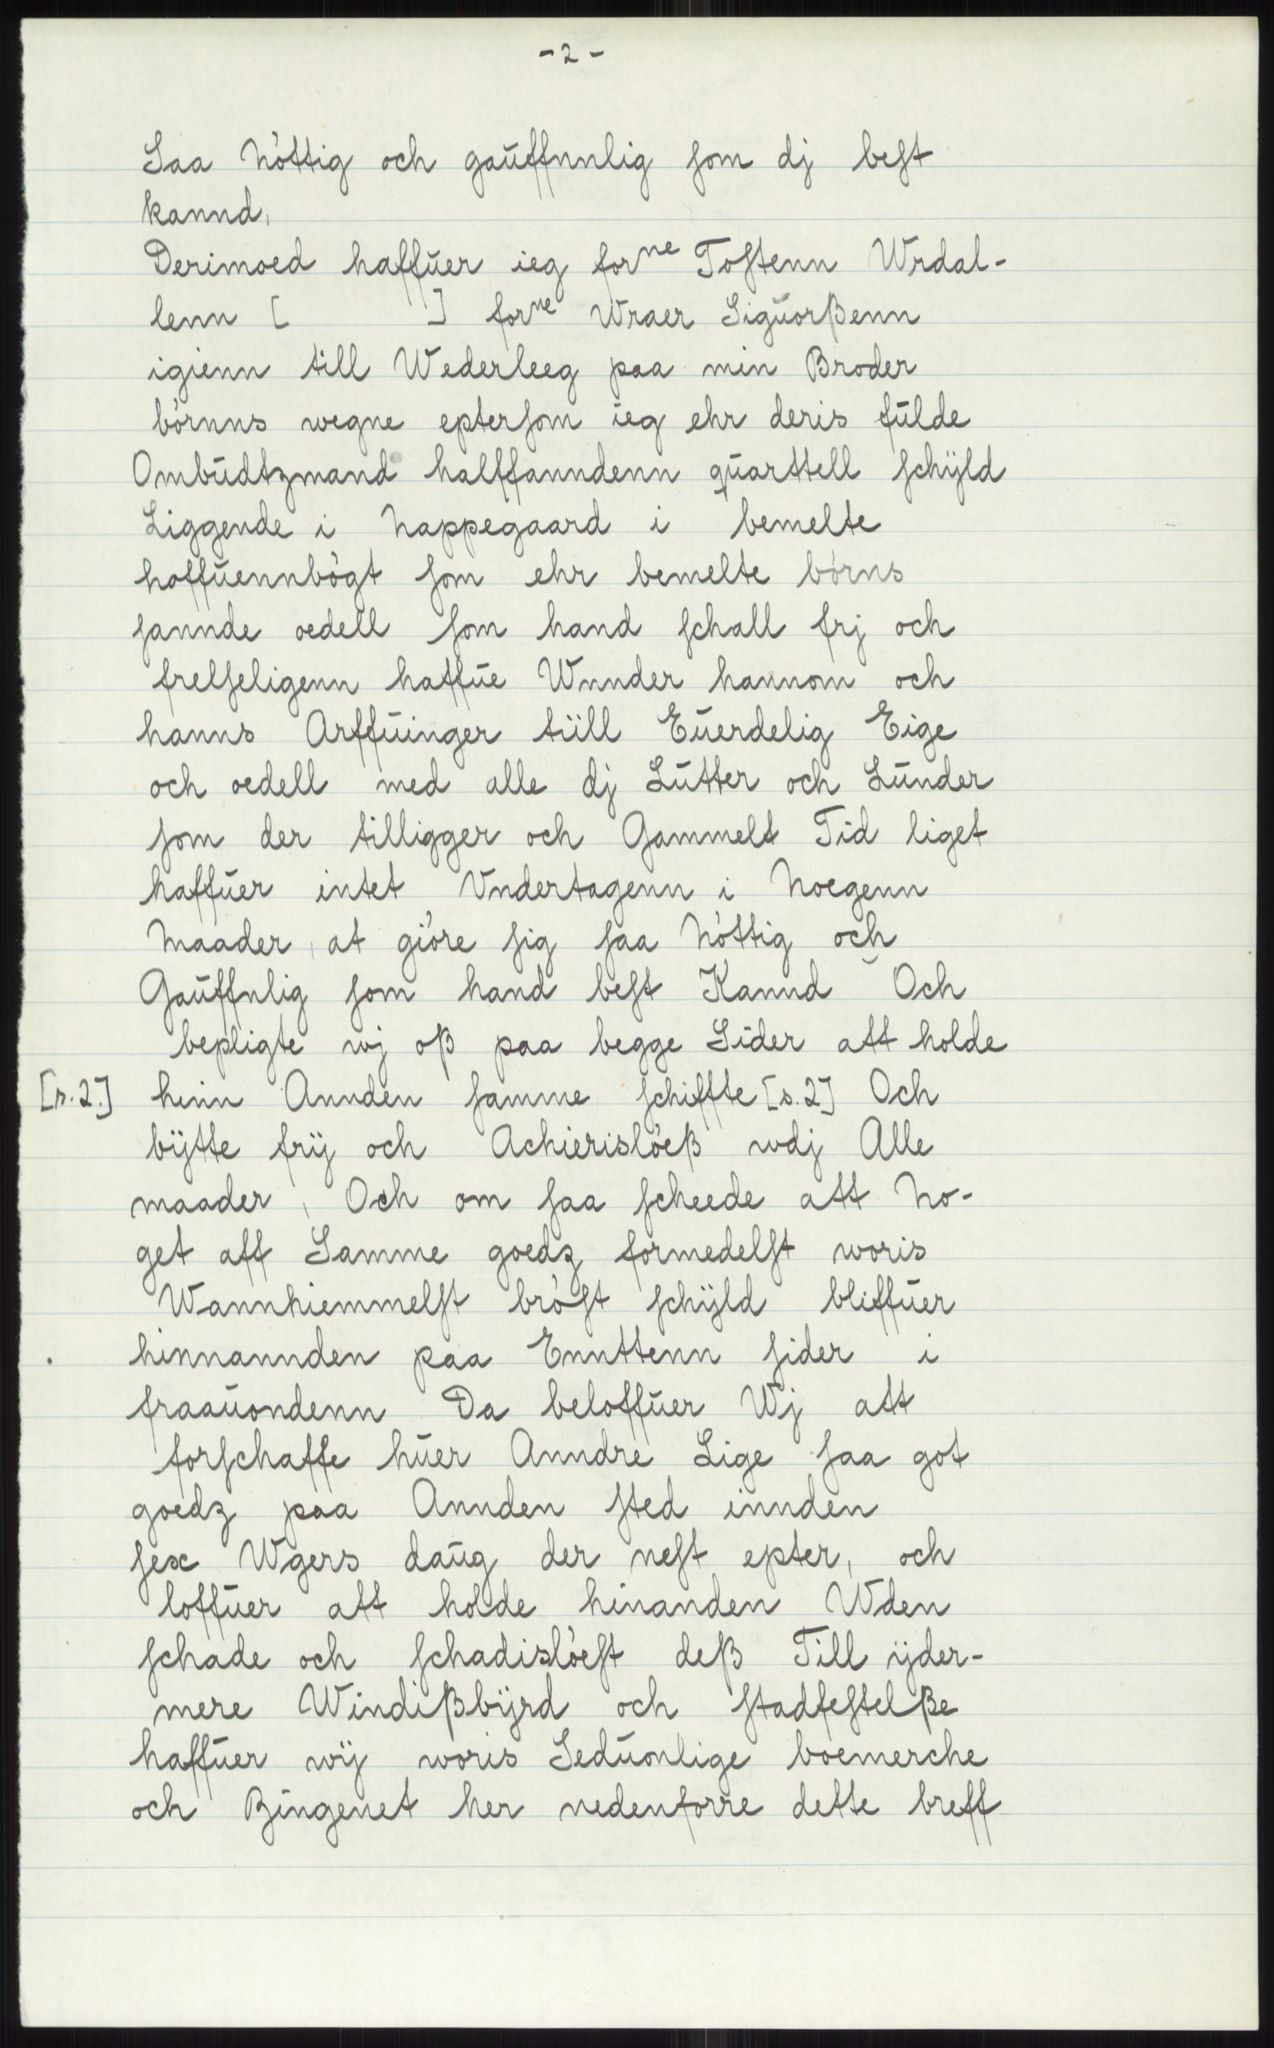 -2-
Saa Nöttig och gauffnnlig som dj best
kannd,
Derimoed haffuer ieg forne Tostenn Wrdal-
lenn [ ] forne Wraer Siguorßenn
igienn till Wederleeg paa min Broder
börnns wegne eptersom ieg ehr deris fulde
Ombudtzmand halffanndenn quarttell schÿld
Liggende i Nappegaard i bemelte
haffuennbögt som ehr bemelte börns
sannde oedell som hand schall frj och
frelseligenn haffue Wnnder hannom och
hanns Arffuinger tiill Euerdelig Eige
och oedell med alle dj Lutter och Lunder
som der tilligger och Gammelt Tid liget
haffuer intet Vndertagenn i Noegenn
Maader, at giöre sig saa Nöttig och
Gauffnlig som hand best Kannd Och
bepligte wj oß paa begge Sider att holde
[r.2.] hinn Annden samme schiffte [s.2] Och
bÿtte frÿ och Achierislöeß wdj Alle
maader, Och om saa scheede att No-
get aff Samme goedz formedelst woris
Wannhiemmelst bröst schÿld bliffuer
hinnannden paa Ennttenn sider i
fraauondenn Da beloffuer Wj att
forschaffe huer Anndre Lige saa got
goedz paa Annden sted innden
sex Wgers daug der nest epter, och
loffuer att holde hinanden Wden
schade och schadislöest deß Till ÿder-
mere Windißbÿrd och stadfestelße
haffuer wÿ woris Seduonlige boemerche
och Zingenet her nedenforre dette breff